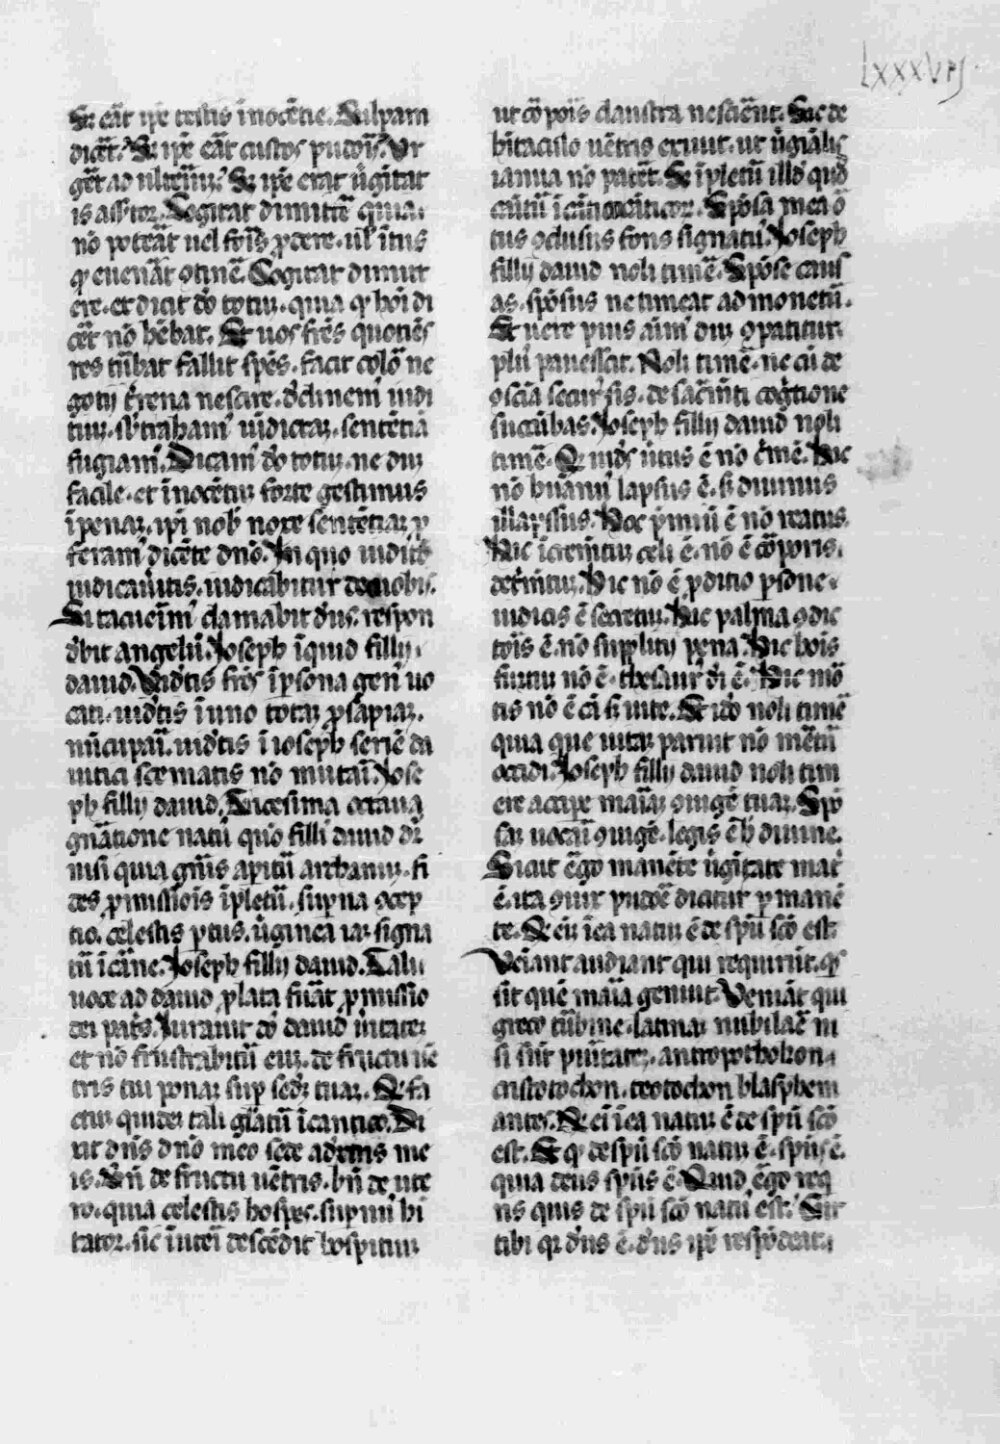 LXXXVIJ.
S; eāt ip̄e testis inocētie. Culpam
dicēt.' S; ip̄e eāt custos pudoris. Ur
gēt ad ultiōnē.' S; ip̄e erat ūgitat
is assertor. Cogitat dimittē quia.
nō poteāt uel foris p̄dere. ul' itus
q̄ euenāt otinē. Cogitat dimitt
ere. et dicit dō totū. quia q̄ hōi di
cēt nō hēbat. Et uos frēs quotiēs
res tūbat fallit spēs. facit colō ne
gotij t̄rena nescire. declinem' iudi
tiuz. sb'trabam' uidictaz. sentētiā
fugiam'. Dicam' dō totuz. ne duz
facile. et inocētiuz forte gestimus
ipenaz. ipi nob' noxe sentētiaz p̄
feram' dicēte dnō. In quo iuditio
iudicauitis. iudicabitur de uobis.
Si tacueim' clamabit dn̄s. respon
dbit angelus. Joseph iquid filij.
dauid. Uidetis frēs ip̄sona gen' uo
cari. uidetis i uno totaz p̄sapiaz.
nūcupari. uidetis i ioseph seriē da
uitici scematis nō mutari. Jose
ph filij dauid. Uicesima octaua
gnāatione natus quō filius dauid dr̄
nisi quia gnis aperitur archanuz. fi
des p̄missiois ipletur. supna ocep
tio. celestis p̄tus. ūginea iaz signa
tur i cāne. Joseph filij dauid. Tali
uoce ad dauid plata fuāt p̄missio
dei patis. Jurauit dō dauid uitatez
et nō frustrabitur euz. de fructu uē
tris tui ponaz sup sedez tuaz. Q; fa
ctuz quidez tali gliātur i cantico. Di
xit dn̄s dnō meo sede a dextris me
is. Bn̄ de fructu uētris. bn̄ de ute
ro. quia celestis hospes. supnus hi
tator. sic i utei descēdit hospitiuz
ut cōpois claustra nescieint. Sic de
bitaculo uētris exiuit. ut ūgiālis
ianua nō patēt. S; ipletur illd' quod
cātur i cāticocāticoz. Sposa mea o
tus oclusus fons signatus. Joseph
filij dauid noli timē. Spōse caus
as. spōsus ne timeat ad monetur.
Et uere pius aim' duz cōpatitur.
plus pauescit. Noli timē. ne cū de
osciā secur' sis. de sacmēti cogitione
sucūbas. Joseph filij dauid noli
timē. Q; uides itus ē nō c̄mē. Hic
nō human' lapsus ē. s; diuinus
illapsus. Hoc p̄miu ē nō reatus.
Hic icremētuz celi ē. nō ē cōporis.
detrimētuz. Hic nō ē p̄ditio p̄sone.
iudicis ē secretuz. Hic palma odic
tois ē. nō supplicij pena. Hic hōis
furtuz nō ē. thesaur' di ē. Hic mō
tis nō ē cā s; uite. Et idō noli timē
quia que uitaz pariut nō mētur
occidi. Joseph filij dauid noli tim
ere accipe mariaz oiugē tuaz. Spō
saz uocari oiugē. legis ē h' diuine.
Sicut ēgo manēte ūgitate mat̄
ē. ita oiux pudoe dicitur p̄manē
te. Q; ei' iea natuz ē de spū scō est.
Ueiant audiant qui requirunt. q'
sit quē maria genuit. Ueniāt qui
greco tūbine. latinaz nubilaē ni
si sūt puritatez. antropothokon.
cristotochon. teotochon blasphem
antes. Q; ei' iea natuz ē de spū scō
est. Et q' de spū scō natuz ē. spūs ē.
quia deus spūs ē. Quid ēgo req
ris quis de spū scō natus est.' Sit
tibi q' dn̄s ē. dn̄s ip̄e respōdeat.